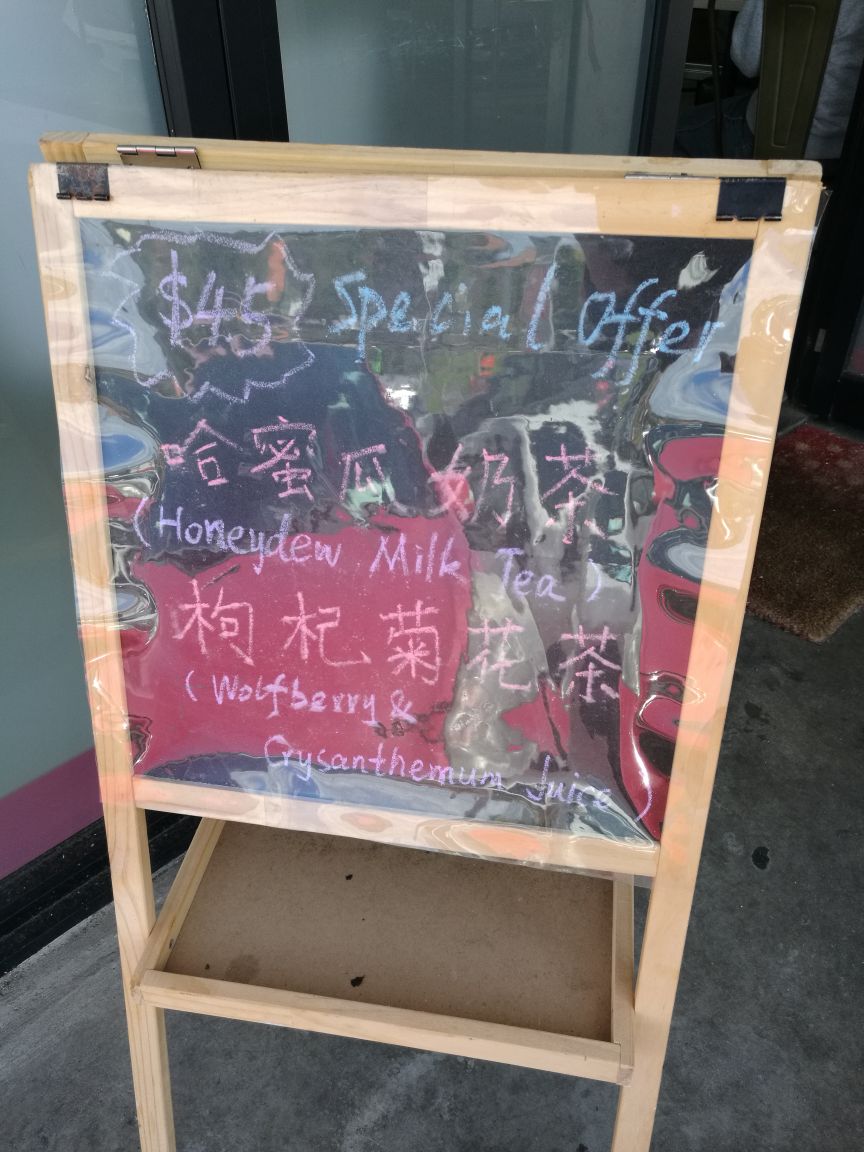 $45 Special Offer
哈蜜瓜奶茶
(Honeydew Milk Tea)
枸杞菊花茶
(Wolfberry &
Crysanthemum Juice)